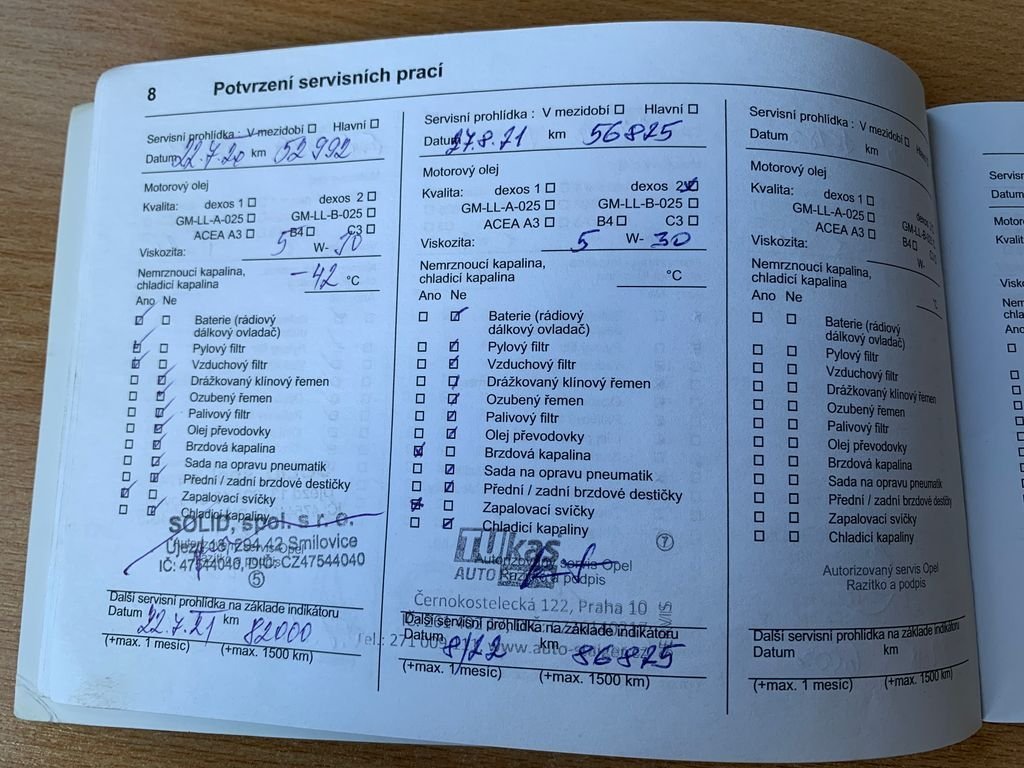 8 Potvrzení servisních prací
Servisní prohlídka : V mezidobí Hlavní
Datum 22.7.20 km 52992
Motorový olej
Kvalita: dexos 1 dexos 2
GM-LL-A-025 GM-LL-B-025
ACEA A3 B4 C3
Viskozita: 5 W-30
Nemrznoucí kapalina,
chladicí kapalina -42 °C
Ano Ne
Baterie (rádiový
dálkový ovladač)
Pylový filtr
Vzduchový filtr
Drážkovaný klínový řemen
Ozubený řemen
Palivový filtr
Olej převodovky
Brzdová kapalina
Sada na opravu pneumatik
Přední / zadní brzdové destičky
Zapalovací svíčky
Chladicí kapaliny
SOLID, spol. s r. o.
Autorizovaný servis Opel
Újezd 13, 294 42 Smilovice
Razítko a podpis
IČ: 47544040, DIČ: CZ47544040
5
Další servisní prohlídka na základě indikátoru
Datum 22.7.21 km 82000
(+max. 1 mesíc) (+max. 1500 km)
Servisní prohlídka : V mezidobí Hlavní
Datum 27.8.21 km 56875
Motorový olej
Kvalita: dexos 1 dexos 2
GM-LL-A-025 GM-LL-B-025
ACEA A3 B4 C3
Viskozita: 5 W- 30
Nemrznoucí kapalina,
chladicí kapalina °C
Ano Ne
Baterie (rádiový
dálkový ovladač)
Pylový filtr
Vzduchový filtr
Drážkovaný klínový řemen
Ozubený řemen
Palivový filtr
Olej převodovky
Brzdová kapalina
Sada na opravu pneumatik
Přední / zadní brzdové destičky
Zapalovací svíčky
Chladicí kapaliny
TUkas 7
Autorizovaný servis Opel
AUTO Razítko a podpis
Černokostelecká 122, Praha 10
Další servisní prohlídka na základě indikátoru
Datum 8/22 km 86875
(+max. 1 mesíc) (+max. 1500 km)
Servisní prohlídka : V mezidobí
Datum km
Motorový olej
Kvalita: dexos 1
GM-LL-A-025 GM-LL-B-025
ACEA A3 B4
Viskozita: W-
Nemrznoucí kapalina,
chladicí kapalina °C
Ano Ne
Baterie (rádiový
dálkový ovladač)
Pylový filtr
Vzduchový filtr
Drážkovaný klínový řemen
Ozubený řemen
Palivový filtr
Olej převodovky
Brzdová kapalina
Sada na opravu pneumatik
Přední / zadní brzdové destičky
Zapalovací svíčky
Chladicí kapaliny
Autorizovaný servis Opel
Razítko a podpis
Další servisní prohlídka na základě indikátoru
Datum km
(+max. 1 mesíc) (+max. 1500 km)